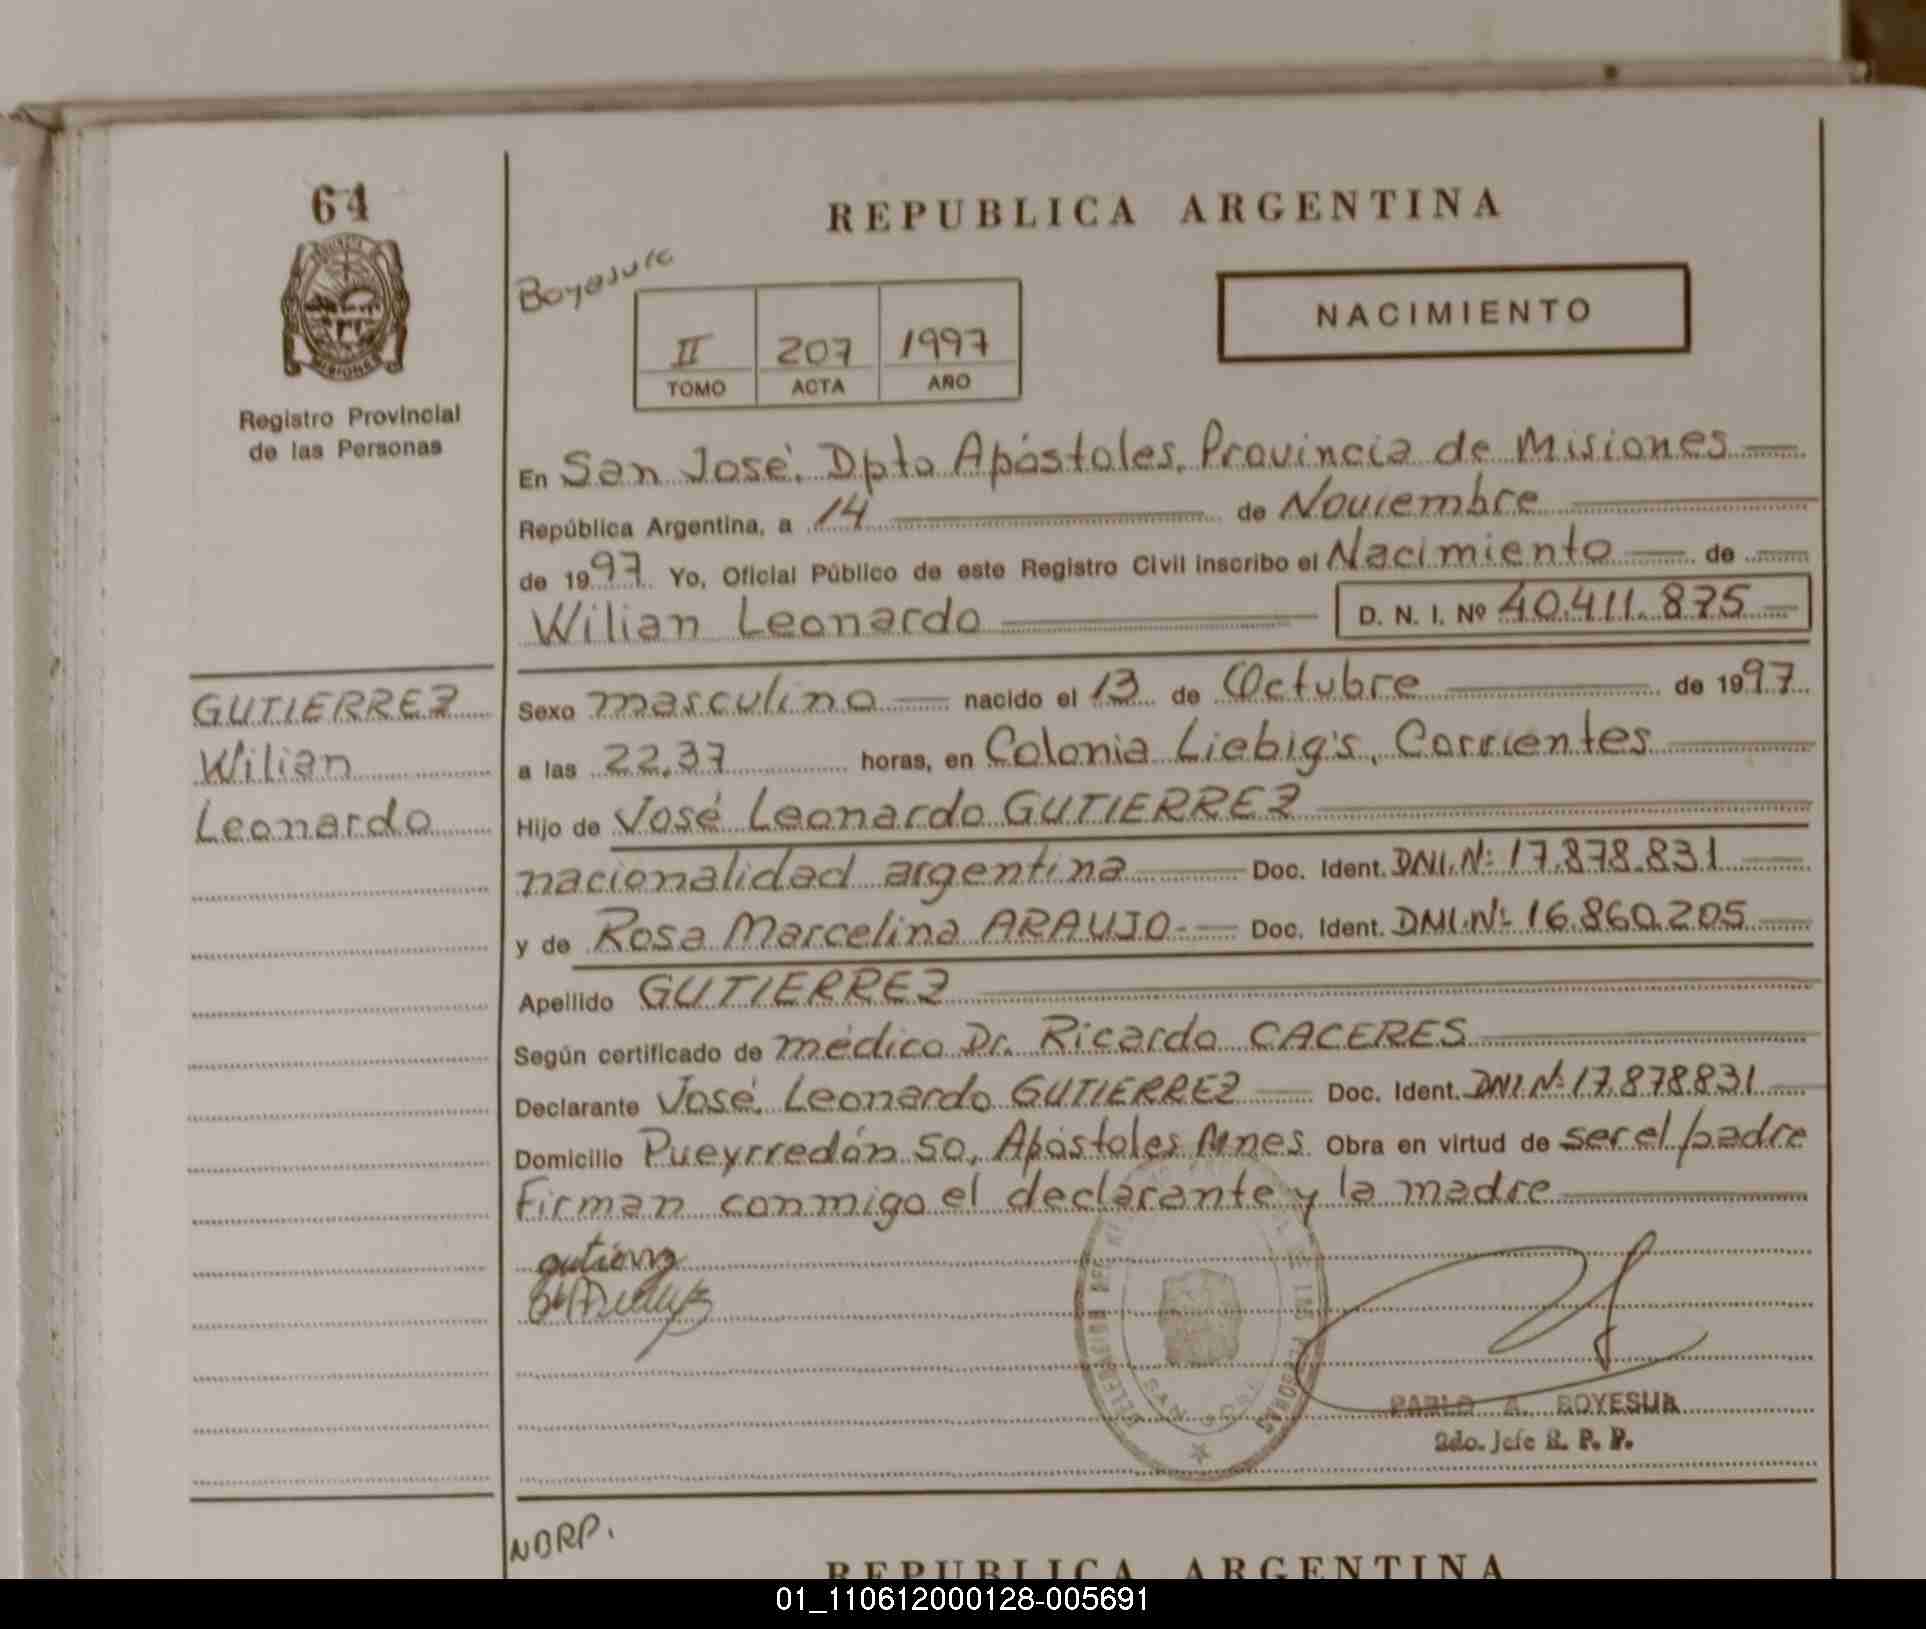 64
REPUBLICA ARGENTINA
NACIMIENTO
II 207 1997
TOMO ACTA AÑO
Registro Provincial
de las Personas
En San José, Dpto Apóstoles, Provincia de Misiones
República Argentina, a 14 de Noviembre
de 1997 Yo, Oficial Público de este Registro Civil inscribo el Nacimiento de
Wilian Leonardo D. N. I. Nº 40.411.875
GUTIERREZ
Wilian
Leonardo
Sexo masculino nacido el 13 de Octubre de 1997
a las 22,37 horas, en Colonia Liebig's, Corrientes
Hijo de José Leonardo GUTIERREZ
nacionalidad argentina Doc. Ident. DNI.Nº 17.878.831
y de Rosa Marcelina ARAUJO.- Doc. Ident. DNI.Nº 16.860.205
Apellido GUTIERREZ
Según certificado de médico Dr. Ricardo CACERES
Declarante José Leonardo GUTIERREZ Doc. Ident. DNI.Nº 17.878.831
Domicilio Pueyrredón 50, Apóstoles Mnes. Obra en virtud de ser el padre
Firman conmigo el declarante y la madre
PABLO A. BOYESUK
2do. Jefe R. P. P.
NBRP.
REPUBLICA ARGENTINA
01_110612000128-005691